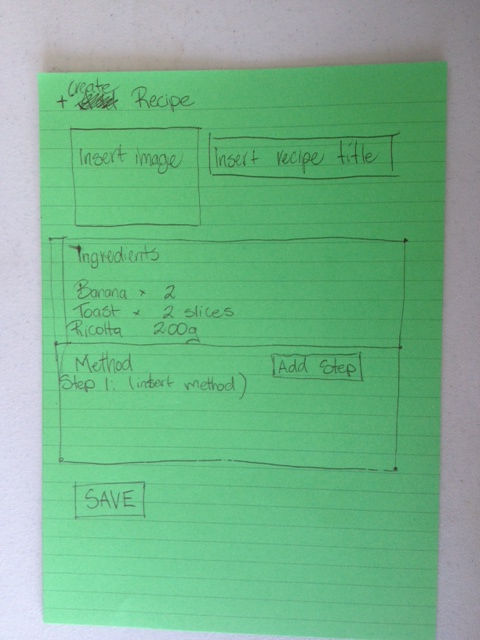 create
+ Recipe
Insert image
Insert recipe title
Ingredients
Banana × 2
Toast × 2 slices
Ricotta 200g
Method
Add Step
Step 1: (insert method)
SAVE